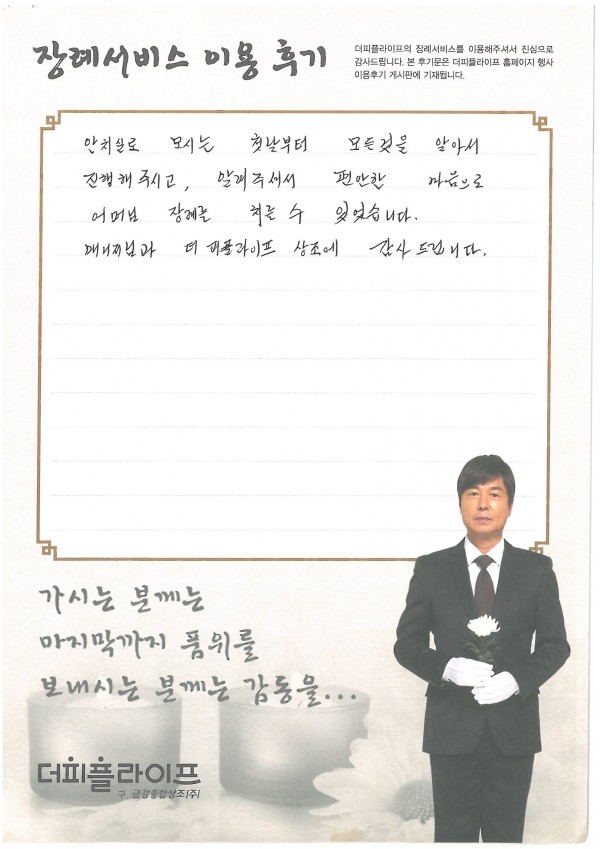 장례서비스 이용 후기
더피플라이프의 장례서비스를 이용해주셔서 진심으로
감사드립니다. 본 후기문은 더피플라이프 홈페이지 행사
이용후기 게시판에 기재됩니다.
안치실로 모시는 첫날부터 모든것을 알아서
진행해 주시고, 알려주셔서 편안한 마음으로
어머님 장례를 치를 수 있었습니다.
매니저님과 더 피플라이프 상조에 감사 드립니다.
가시는 분께는
마지막까지 품위를
보내시는 분께는 감동을...
더피플라이프
구. 금강종합상조(주)